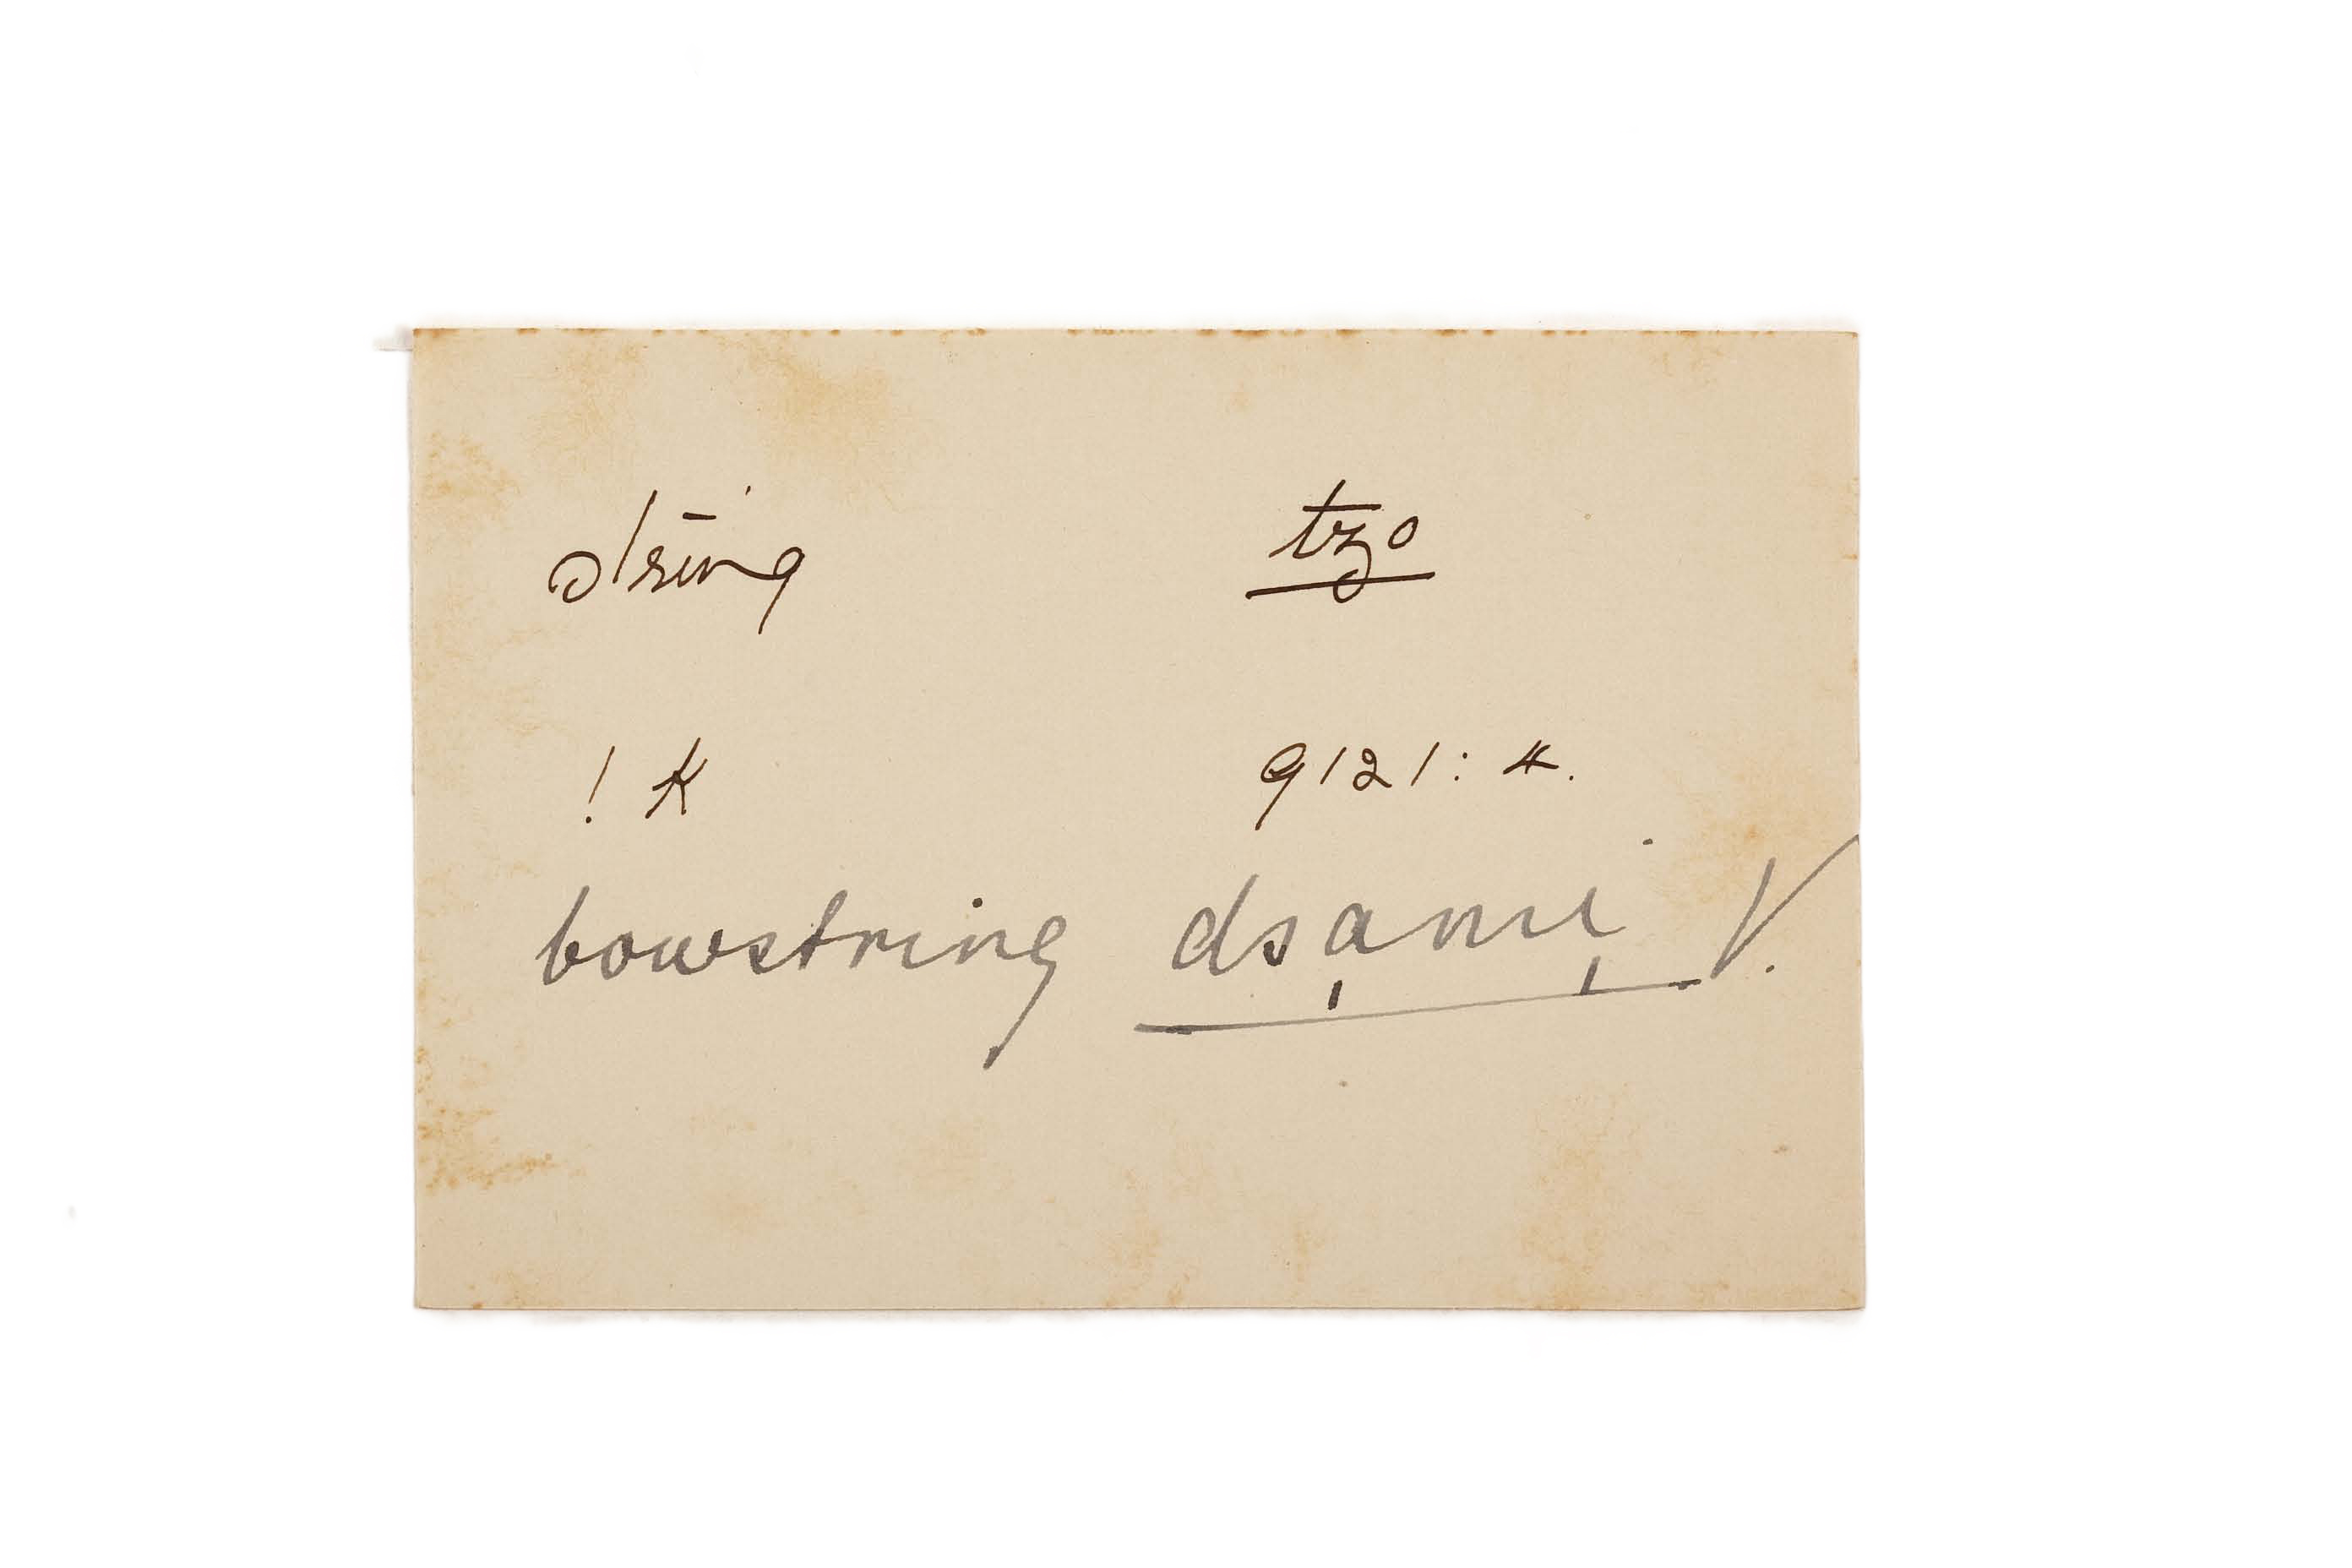 string tzo
! K 9121: 4.
bowstring dsa̩mi̩ V.